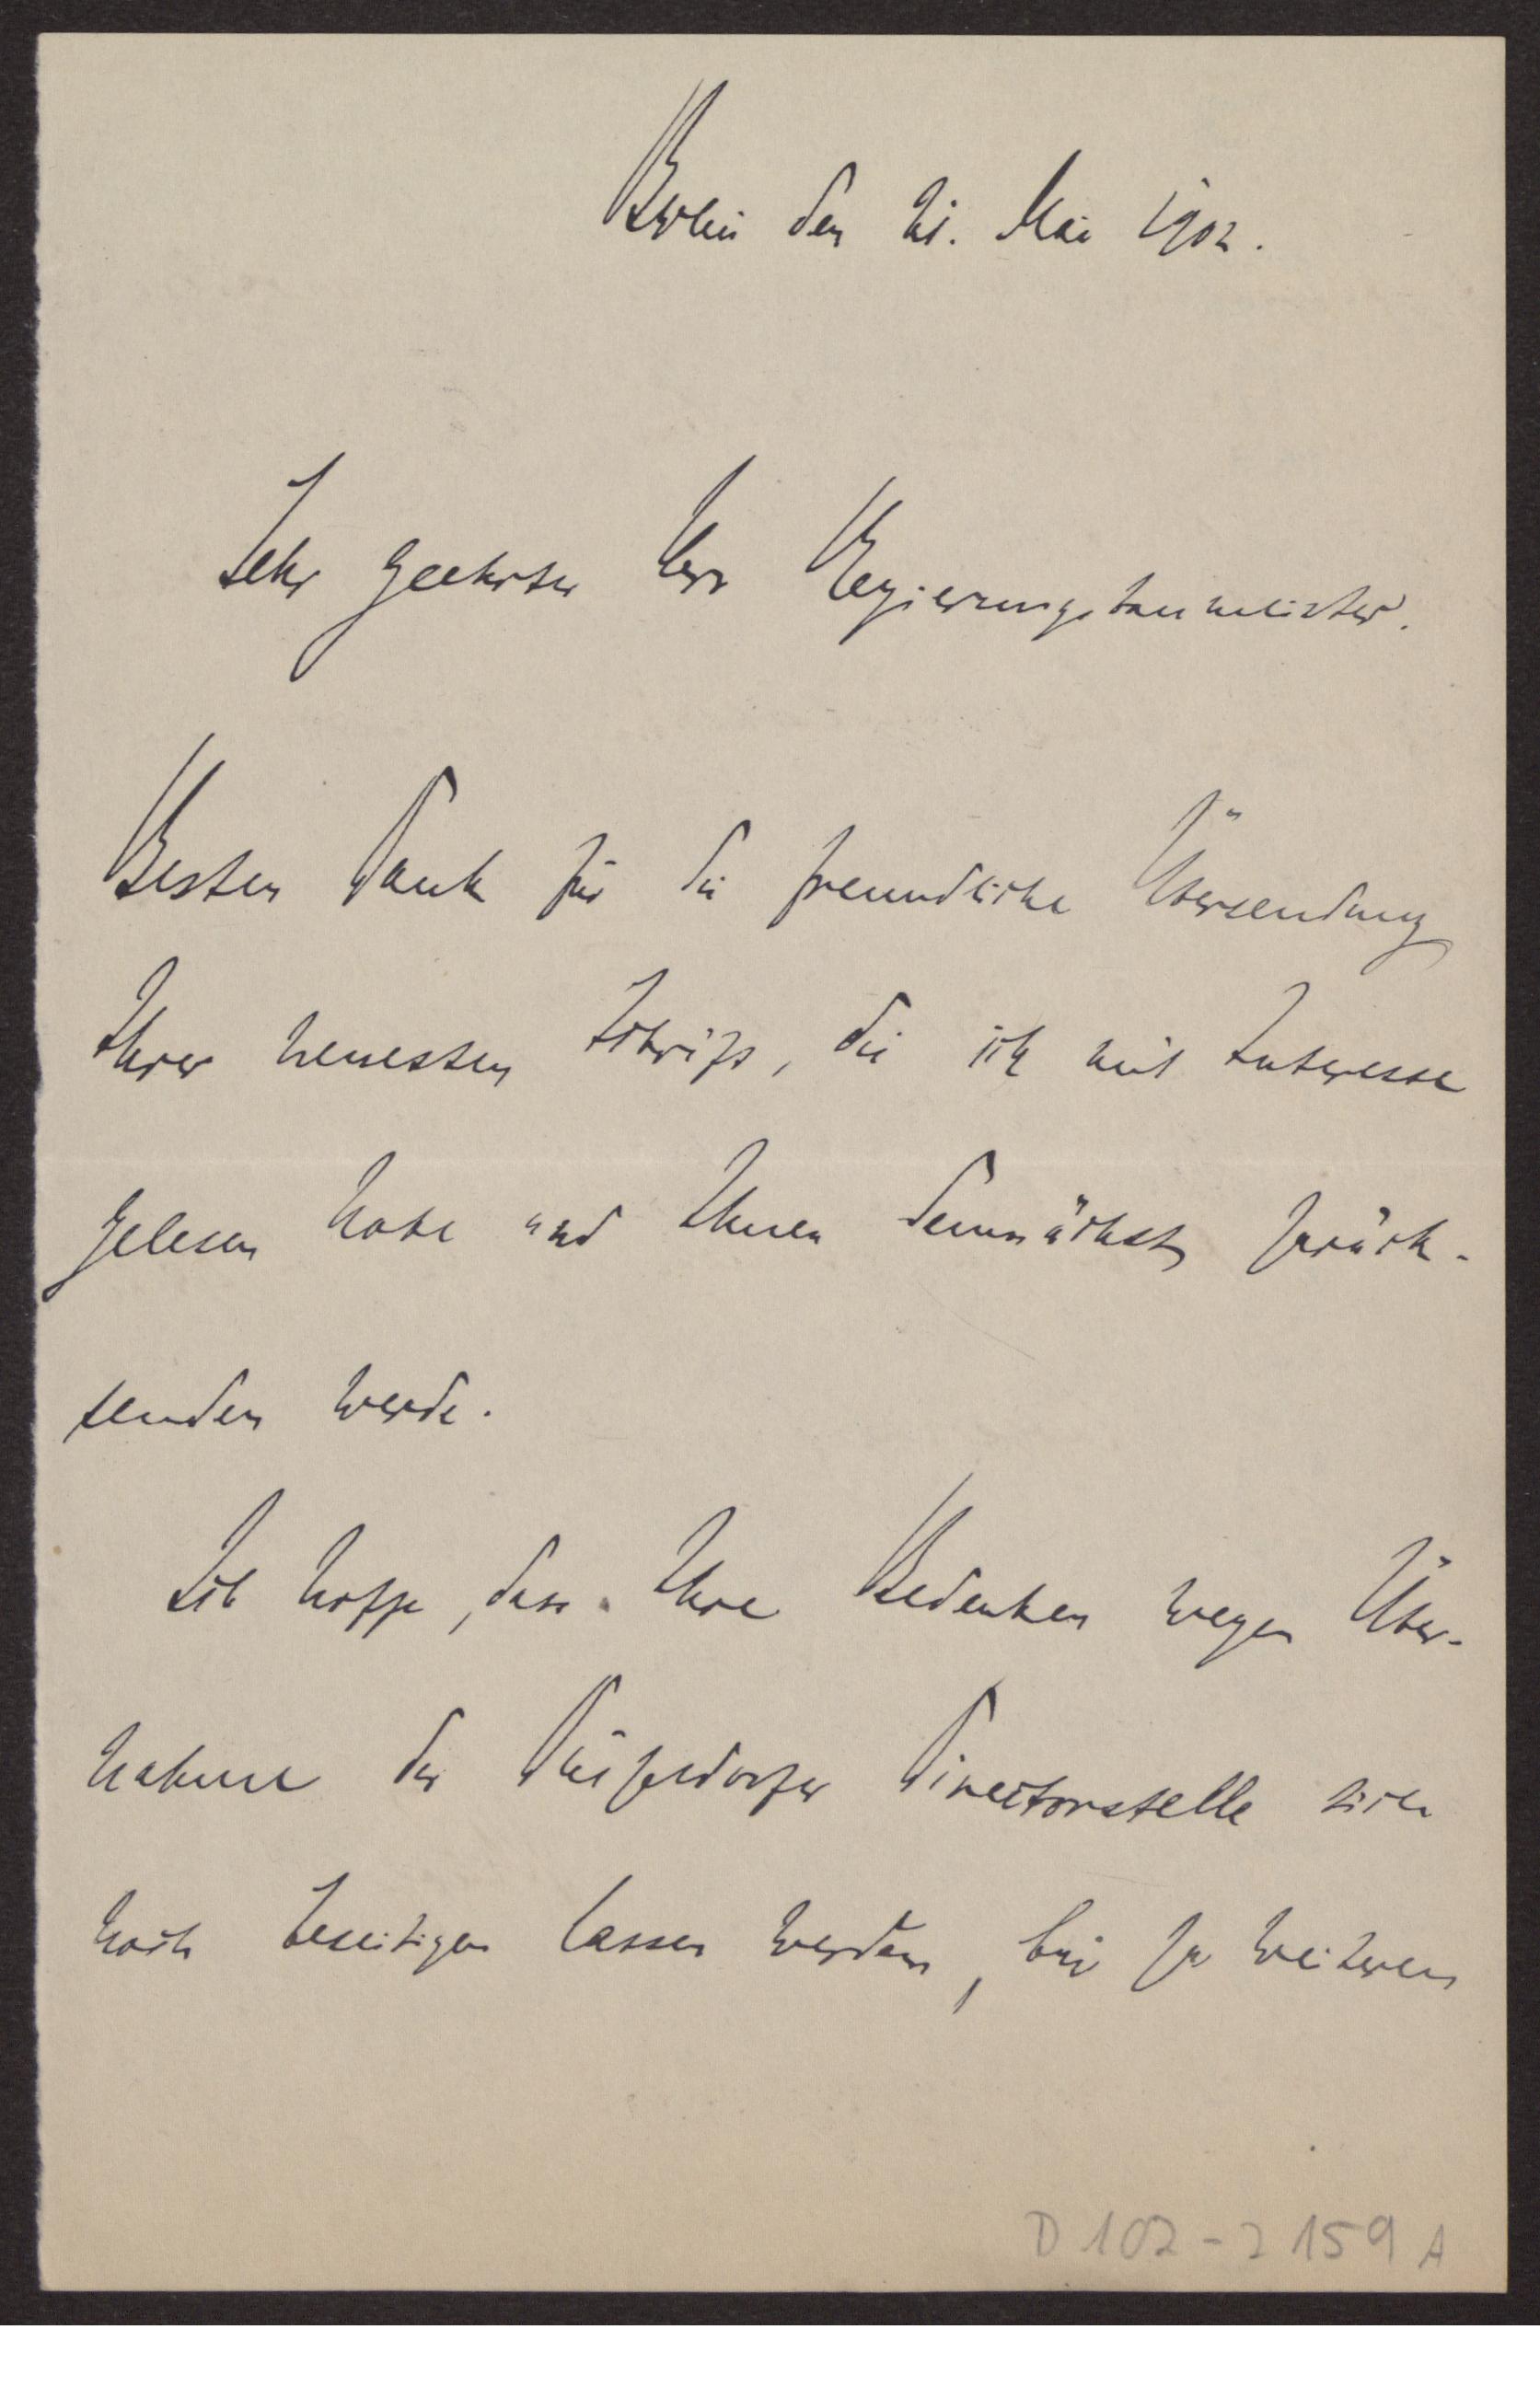 Berlin den 21. Mai 1902.
Sehr geehrter Herr Regierungsbaumeister.
Besten Dank für die freundliche Übersendung
Ihrer neuesten Schrift, die ich mit Interesse
gelesen habe und Ihnen demnächst zurück-
senden werde.
Ich hoffe, dass Ihre Bedenken wegen Über-
nahme der Düsseldorfer Directorstelle sich
noch beseitigen lassen werden, bin zu weiteren
D 102-2159 A